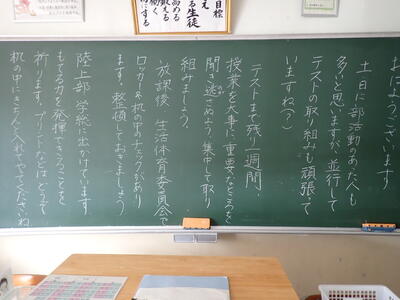 目標
え
る生徒
高める
敵える
働く
にする
おはようございます
土日に部活動のあった人も
多いと思いますが、並行して
テストの取り組みも頑張って
いますね(?)
テストまで残り一週間。
授業を大事に、重要なところを
聞き逃さぬよう、集中して取り
組みましょう。
放課後、生活体育委員会で
ロッカーと机の中のチェックがあり
ます。整頓しておきましょう
陸上部、学総に出かけています
もてる力を発揮できることを
祈ります。プリントなどはどうぞ
机の中にきちんと入れてやってくださいね。